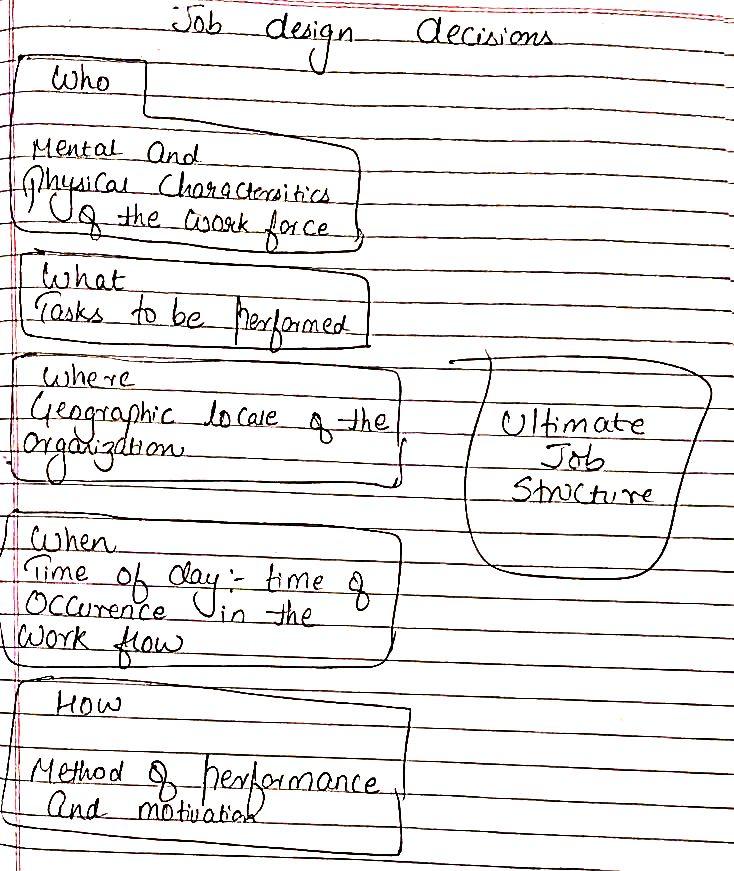 Job design decisions
Who
Mental and
Physical Charactersitics
of the work force
What
Tasks to be performed
Where
Geographic locale of the
organization
When
Time of day:- time of
Occurence in the
work flow
How
Method of performance
and motivation
Ultimate
Job
Structure